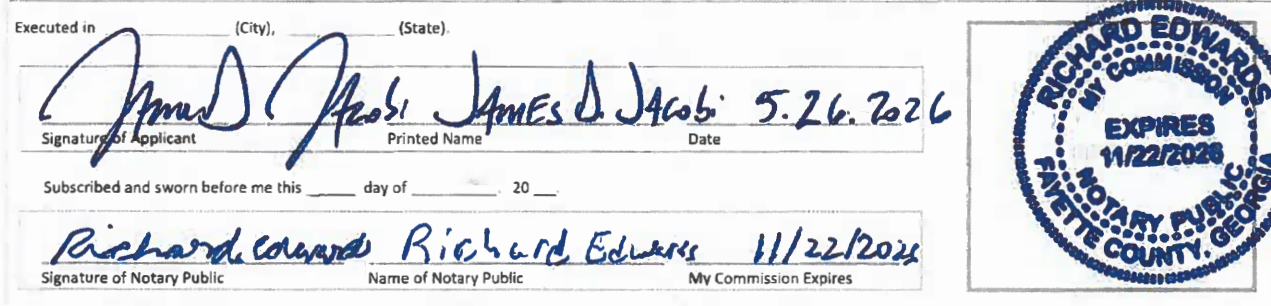 Executed in ____________ (City), ____________ (State).
James D. Jacobi JAMES D. JACobi 5.26.2026
Signature of Applicant Printed Name Date
Subscribed and sworn before me this _____ day of __________. 20 ___.
Richard Edwards Richard Edwards 11/22/2026
Signature of Notary Public Name of Notary Public My Commission Expires
RICHARD EDWARDS
MY COMMISSION
EXPIRES
11/22/2026
NOTARY PUBLIC
FAYETTE COUNTY, GEORGIA